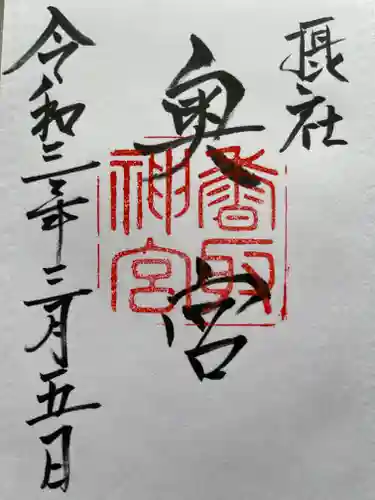 摂社
奥宮
香取神宮
令和三年三月五日